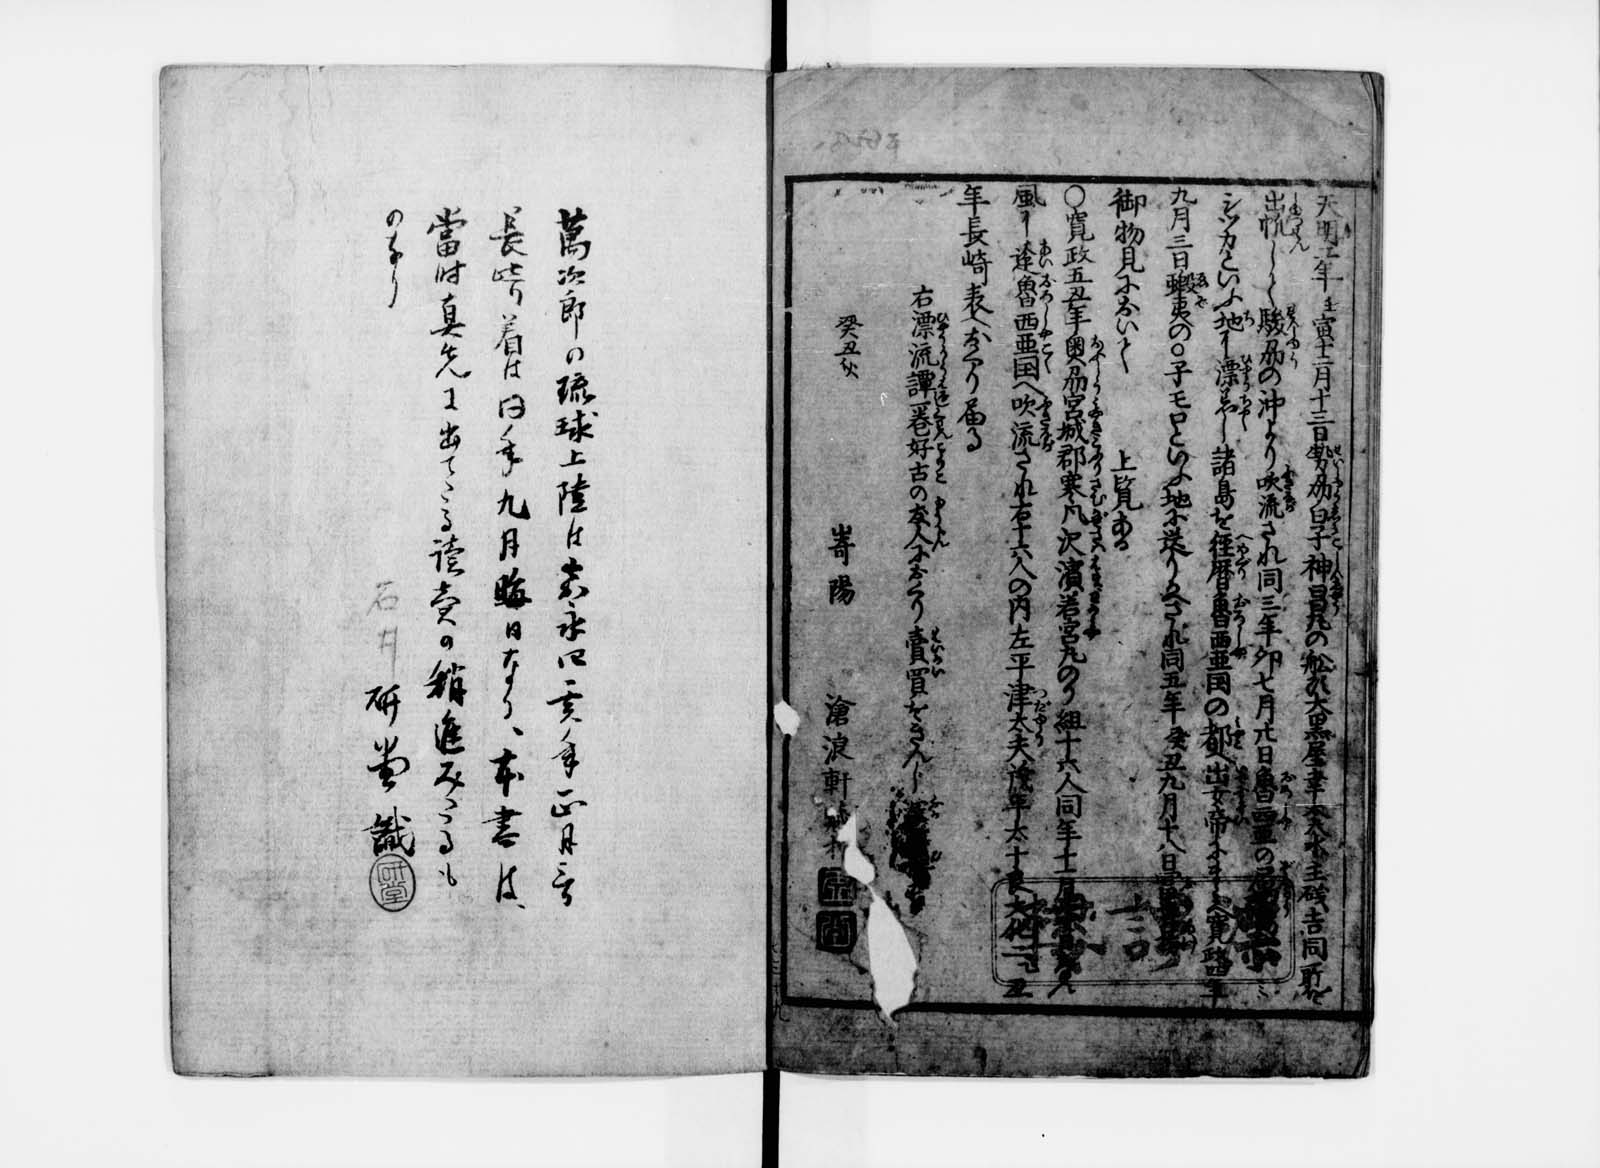 天明二年壬寅十二月十三日勢刕白子神昌丸の舩頭大黒屋幸太夫水主磯吉同所を
出帆しして駿刕の沖より吹流され同三年卯七月廿日魯西亜の属
シツカといふ地に漂着し諸島を径暦魯西亜国の都へ出女帝に寛政四年
九月三日蝦夷の子モロといふ地に送りかへされ同五年癸丑九月十八日
御物見において　上覧ある
〇寛政五丑年奥刕宮城郡寒凡沢濱若宮丸のり組十六人同年十一月
風に逢魯西亜国へ吹流され右十六人の内左平津太夫茂年太十良文化二丑
年長崎表へおくり届る
右漂流譚一巻好古の友人におくり賣買をきんし
癸丑秋
嵜陽　滄浪軒
萬次郎の琉球上陸は嘉永四亥年正月三日
長崎着は同年九月晦日なり、本書は、
當時真先に出てたる讀売の稍進みたるも
のなり
石井研堂識
研堂